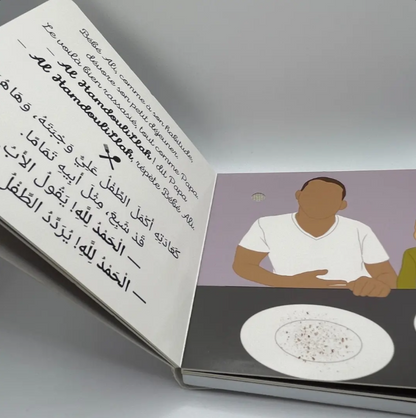 Bébé Ali, comme à son habitude,
dévore son petit déjeuner.
Le voilà bien rassasié, tout comme Papa.
— Al Hamdoulillah, dit Papa.
— Al Hamdoulillah, répète Bébé Ali.
كَعَادَتِهِ أَكْمَلَ الطِّفْلُ عَلِيٌّ وَجْبَتَهُ، وَهَا هُوَ
قَدْ شَبِعَ، مِثْلَ أَبِيهِ تَمَامًا.
— الْحَمْدُ لِلَّهِ! يَقُولُ الْأَبُ.
— الْحَمْدُ لِلَّهِ! يُرَدِّدُ الطِّفْلُ